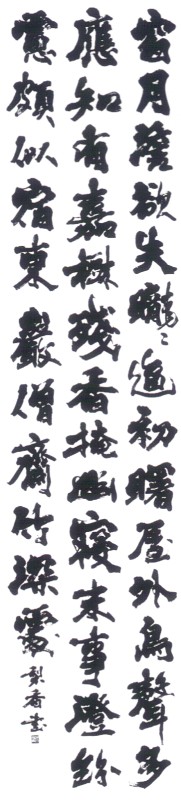 窗月隱欲失朧〻迨初曙屋外鳥聲多
應知有嘉樹殘香掩幽寢未事澄紛
慮頗似宿東巖僧齋竹深處
梨香書